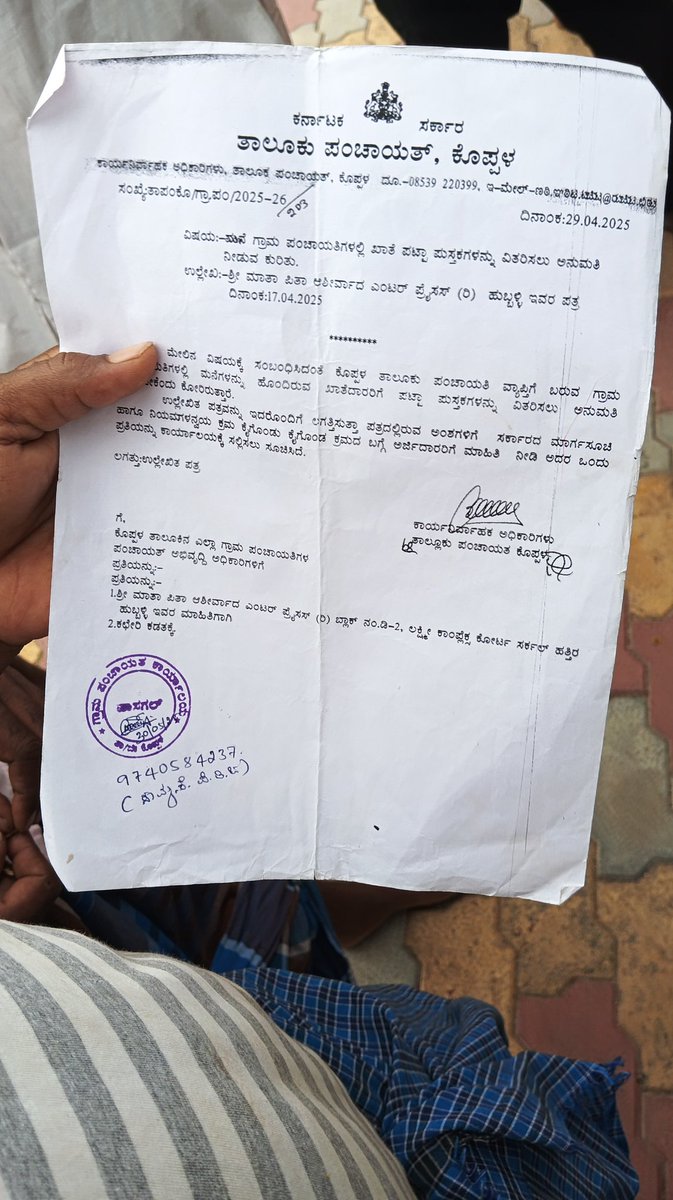 ಕರ್ನಾಟಕ ಸರ್ಕಾರ
ತಾಲೂಕು ಪಂಚಾಯತ್, ಕೊಪ್ಪಳ
ಕಾರ್ಯನಿರ್ವಾಹಕ ಅಧಿಕಾರಿಗಳು, ತಾಲೂಕ ಪಂಚಾಯತ್, ಕೊಪ್ಪಳ ದೂ.-08539 220399, ಇ-ಮೇಲ್-
ಸಂಖ್ಯೆ:ತಾಪಂಕೊ/ಗ್ರಾ.ಪಂ/2025-26/203
ದಿನಾಂಕ:29.04.2025
ವಿಷಯ:- ಗ್ರಾಮ ಪಂಚಾಯತಿಗಳಲ್ಲಿ ಖಾತೆ ಪಟ್ಟಾ ಪುಸ್ತಕಗಳನ್ನು ವಿತರಿಸಲು ಅನುಮತಿ
ನೀಡುವ ಕುರಿತು.
ಉಲ್ಲೇಖ:-ಶ್ರೀ ಮಾತಾ ಪಿತಾ ಆಶೀರ್ವಾದ ಎಂಟರ್ ಪ್ರೈಸಸ್ (ರಿ) ಹುಬ್ಬಳ್ಳಿ ಇವರ ಪತ್ರ
ದಿನಾಂಕ:17.04.2025
**********
ಮೇಲಿನ ವಿಷಯಕ್ಕೆ ಸಂಬಂಧಿಸಿದಂತೆ ಕೊಪ್ಪಳ ತಾಲೂಕು ಪಂಚಾಯತಿ ವ್ಯಾಪ್ತಿಗೆ ಬರುವ ಗ್ರಾಮ
ಮನೆಗಳನ್ನು ಹೊಂದಿರುವ ಖಾತೆದಾರರಿಗೆ ಪಟ್ಟಾ ಪುಸ್ತಕಗಳನ್ನು ವಿತರಿಸಲು ಅನುಮತಿ
ಕೋರಿರುತ್ತಾರೆ.
ಉಲ್ಲೇಖಿತ ಪತ್ರವನ್ನು ಇದರೊಂದಿಗೆ ಲಗತ್ತಿಸುತ್ತಾ ಪತ್ರದಲ್ಲಿರುವ ಅಂಶಗಳಿಗೆ ಸರ್ಕಾರದ ಮಾರ್ಗಸೂಚಿ
ಹಾಗೂ ನಿಯಮಗಳನ್ವಯ ಕ್ರಮ ಕೈಗೊಂಡು ಕೈಗೊಂಡ ಕ್ರಮದ ಬಗ್ಗೆ ಅರ್ಜಿದಾರರಿಗೆ ಮಾಹಿತಿ ನೀಡಿ ಅದರ ಒಂದು
ಪ್ರತಿಯನ್ನು ಕಾರ್ಯಾಲಯಕ್ಕೆ ಸಲ್ಲಿಸಲು ಸೂಚಿಸಿದೆ.
ಲಗತ್ತು:ಉಲ್ಲೇಖಿತ ಪತ್ರ
ಕಾರ್ಯನಿರ್ವಾಹಕ ಅಧಿಕಾರಿಗಳು
ತಾಲ್ಲೂಕು ಪಂಚಾಯತ ಕೊಪ್ಪಳ
ಗೆ,
ಕೊಪ್ಪಳ ತಾಲೂಕಿನ ಎಲ್ಲಾ ಗ್ರಾಮ ಪಂಚಾಯತಿಗಳ
ಪಂಚಾಯತ್ ಅಭಿವೃದ್ಧಿ ಅಧಿಕಾರಿಗಳಿಗೆ
ಪ್ರತಿಯನ್ನು:-
ಪ್ರತಿಯನ್ನು:-
1.ಶ್ರೀ ಮಾತಾ ಪಿತಾ ಆಶೀರ್ವಾದ ಎಂಟರ್ ಪ್ರೈಸಸ್ (ರಿ) ಬ್ಲಾಕ್ ನಂ.ಡಿ-2, ಲಕ್ಷ್ಮೀ ಕಾಂಪ್ಲೆಕ್ಸ ಕೋರ್ಟ ಸರ್ಕಲ್ ಹತ್ತಿರ
ಹುಬ್ಬಳ್ಳಿ ಇವರ ಮಾಹಿತಿಗಾಗಿ
2.ಕಛೇರಿ ಕಡತಕ್ಕೆ.
ಗ್ರಾಮ ಪಂಚಾಯತ ಕಾರ್ಯಾಲಯ
ಹಾಸಗಲ್
ತಾ/ಜಿ ಕೊಪ್ಪಳ
9740584237.